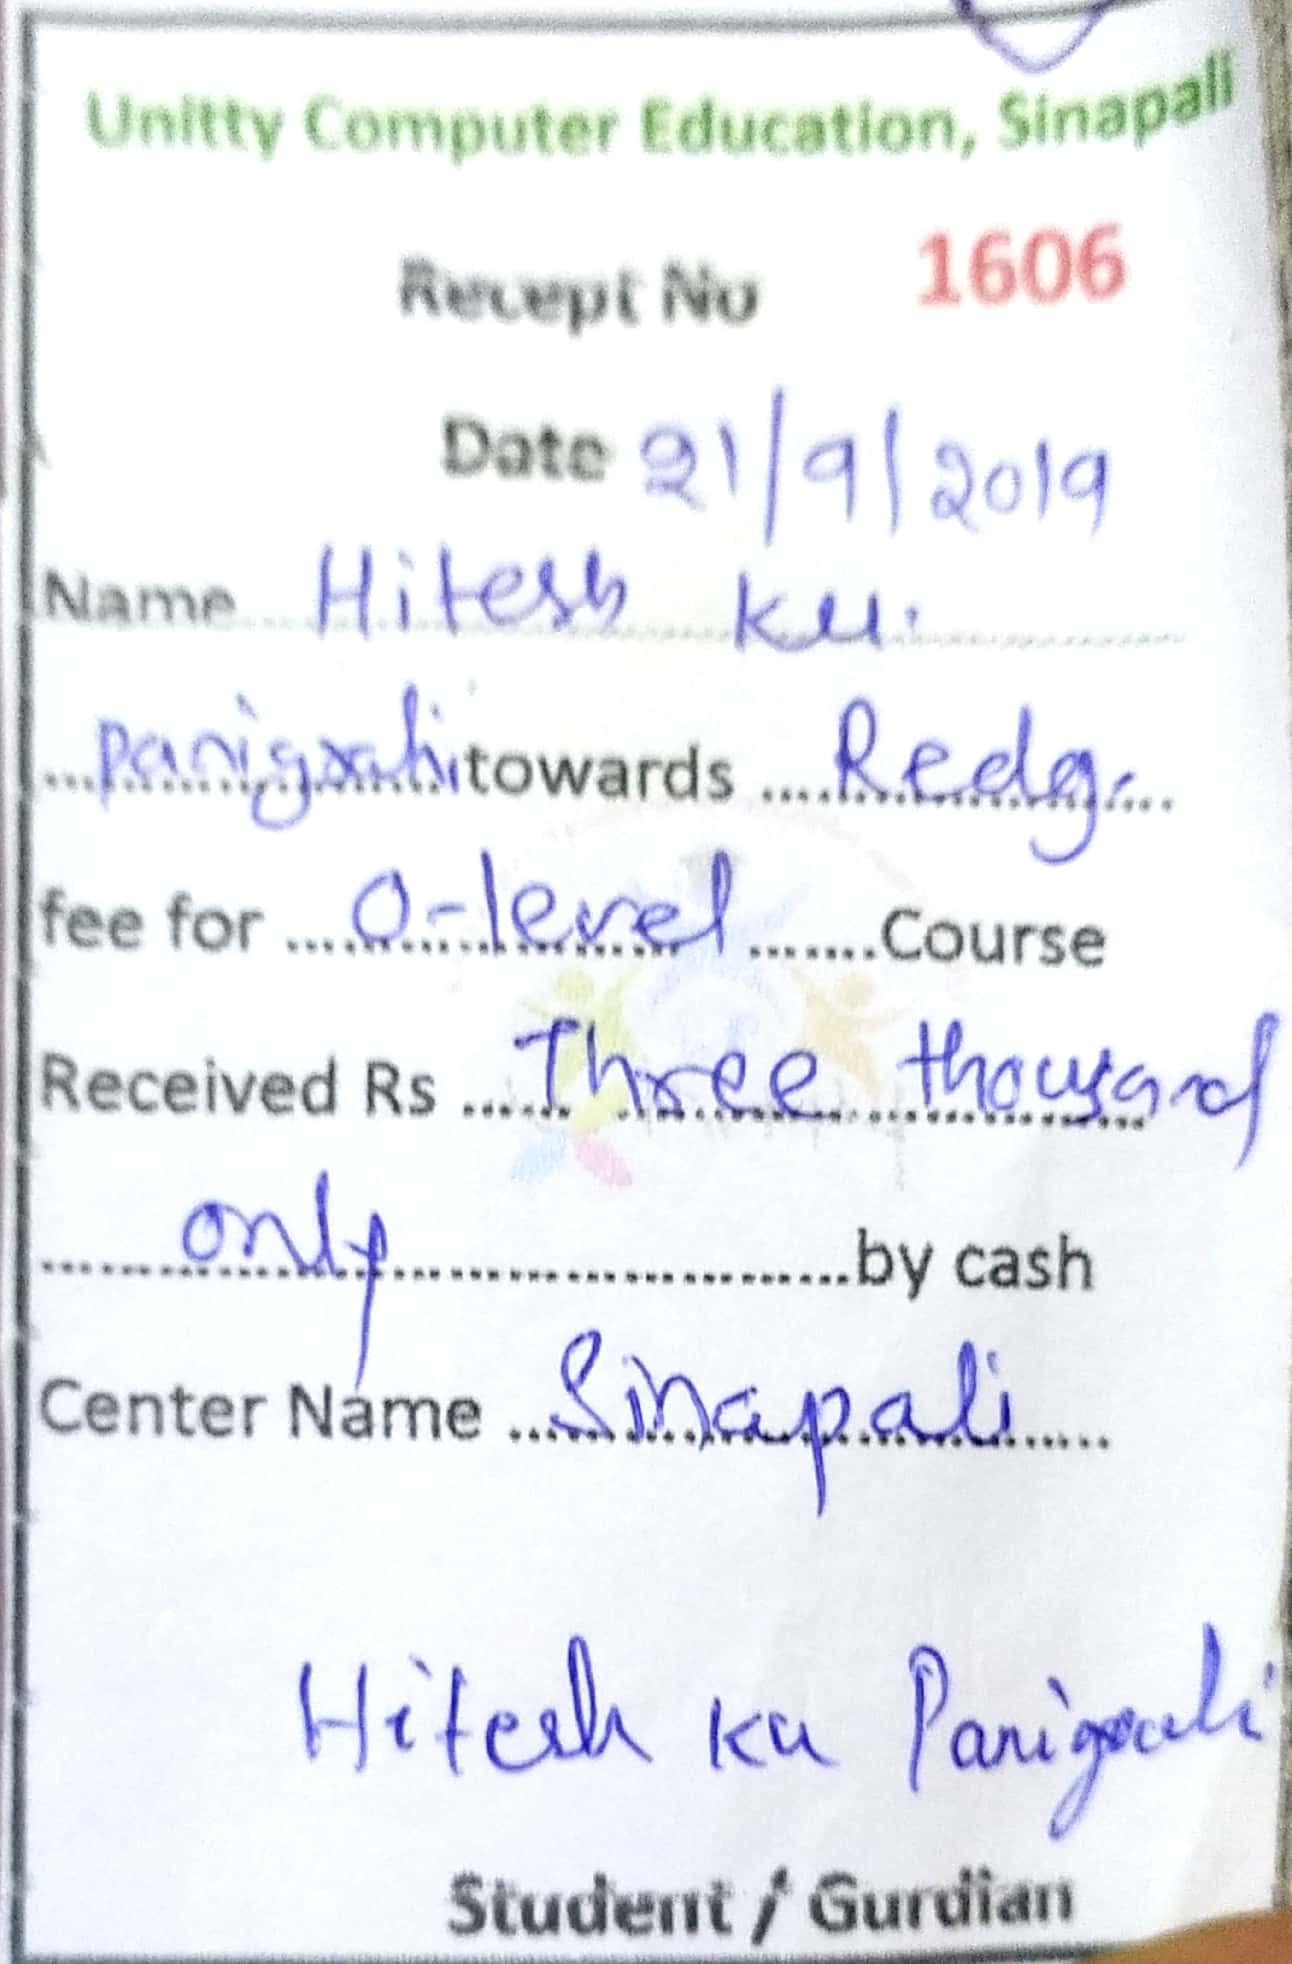 Unitty Computer Education, Sinapali
Recept No 1606
Date 21/9/2019
Name Hitesh Ku.
Panigrahi towards Redg.
fee for O-level Course
Received Rs Three thousand
only by cash
Center Name Sinapali
Hitesh Ku Panigrahi
Student / Gurdian